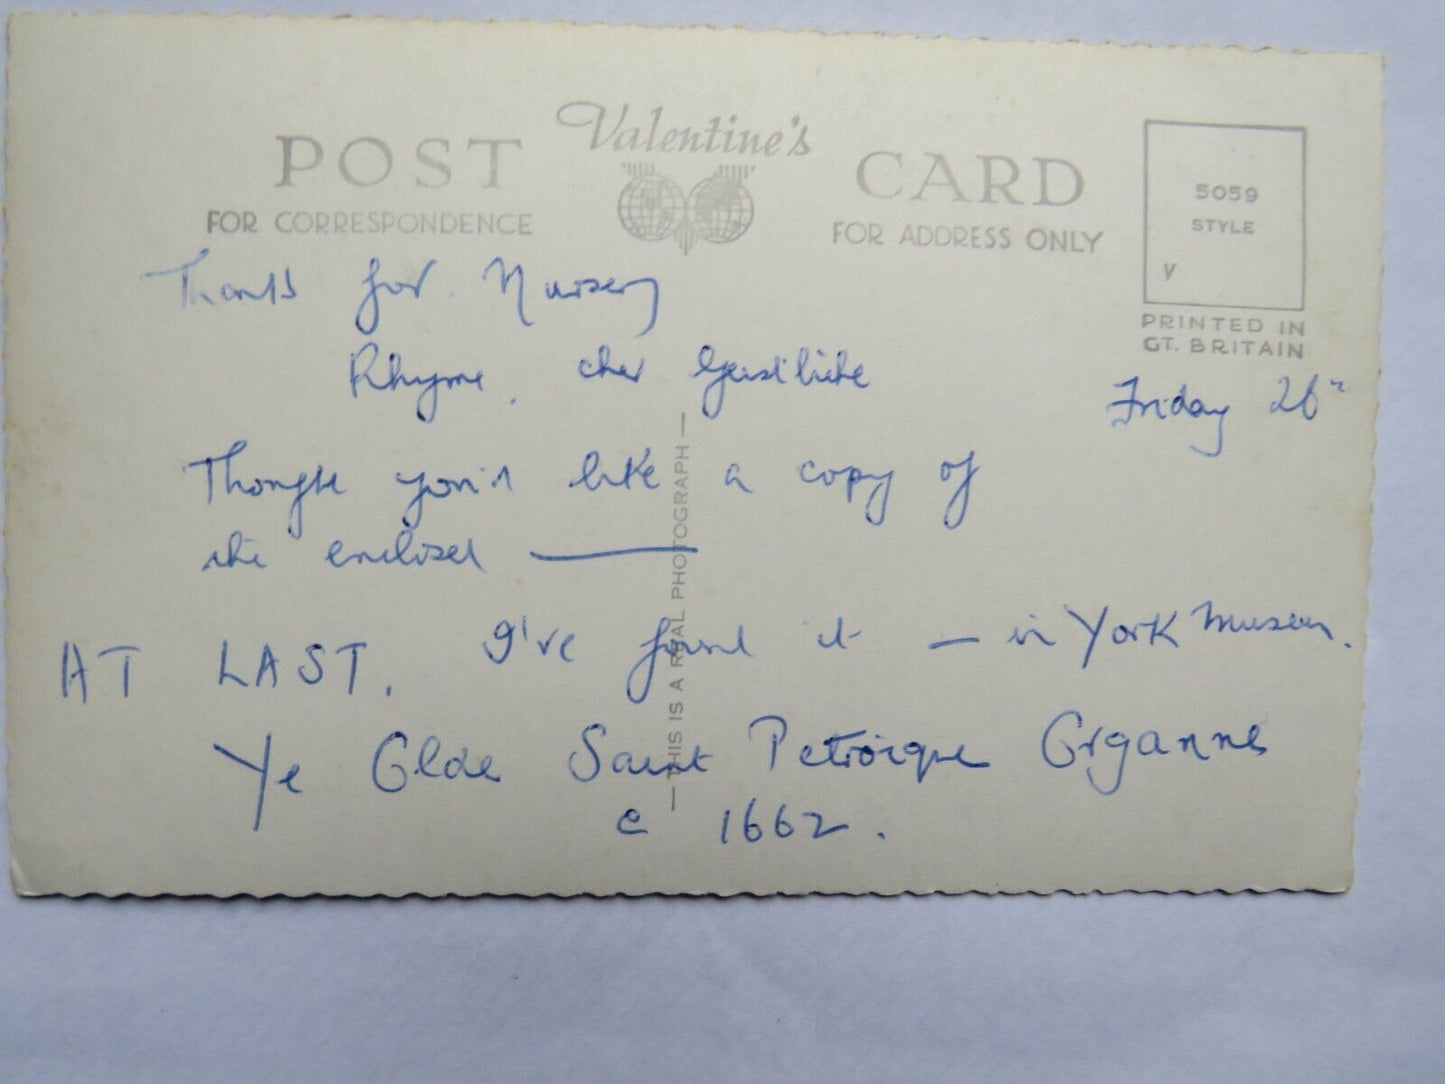 POST Valentine's CARD
FOR CORRESPONDENCE FOR ADDRESS ONLY
5059
STYLE
V
PRINTED IN
GT. BRITAIN
Friday 26th
Thanks for Nursery
Rhyme, cher
Thought you'd like a copy of
the enclosed —
AT LAST. I've found it — in York Museum.
Ye Olde Saint Petroique Organne
c 1662.
— THIS IS A REAL PHOTOGRAPH —